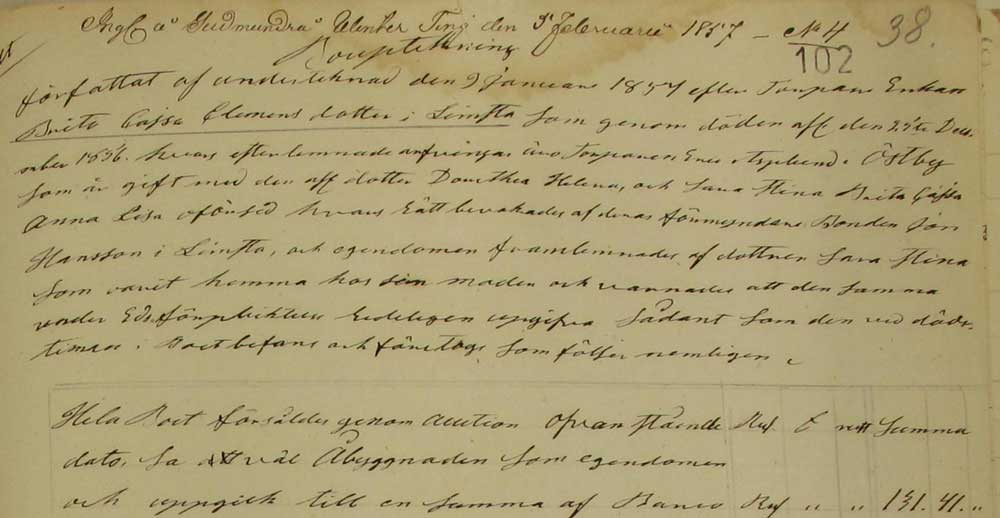 Ingf å Gudmundrå Winter Ting den 5 Februarii 1857 – No 4
38.
102
Bouptekning
författat af undertcknad den 9 Januari 1857 efter Torpare Enkan
Brita Cajsa Clemens dotter i Limsta som genom döden afl. den 23te Dec
ember 1856. hvars efterlemnade arfvingar äro Torparen Eric Asplund i Östby
som är gift med den afl dotter Dorothea Helena, och Sara Stina Brita Cajsa
Anna Lisa oförsed hvars Rätt bevakades af deras förmyndare Bonden Jon
Hansson i Limsta, och egendomen framlemnades af dottren Sara Stina
som varit hemma hos sin moder och varnades att den samma
under Eds förpliktelse Redeligen uppgifva sådant som den ved döds
timan i Boet befans och företogs som följer nemligen
Hela Boet försåldes genom auction ofvanstående Rd. ß rst Summa
dato, Så väl Åbyggnaden som egendomen
och uppgick till en summa af Banco Rd „ „ 131. 41. „